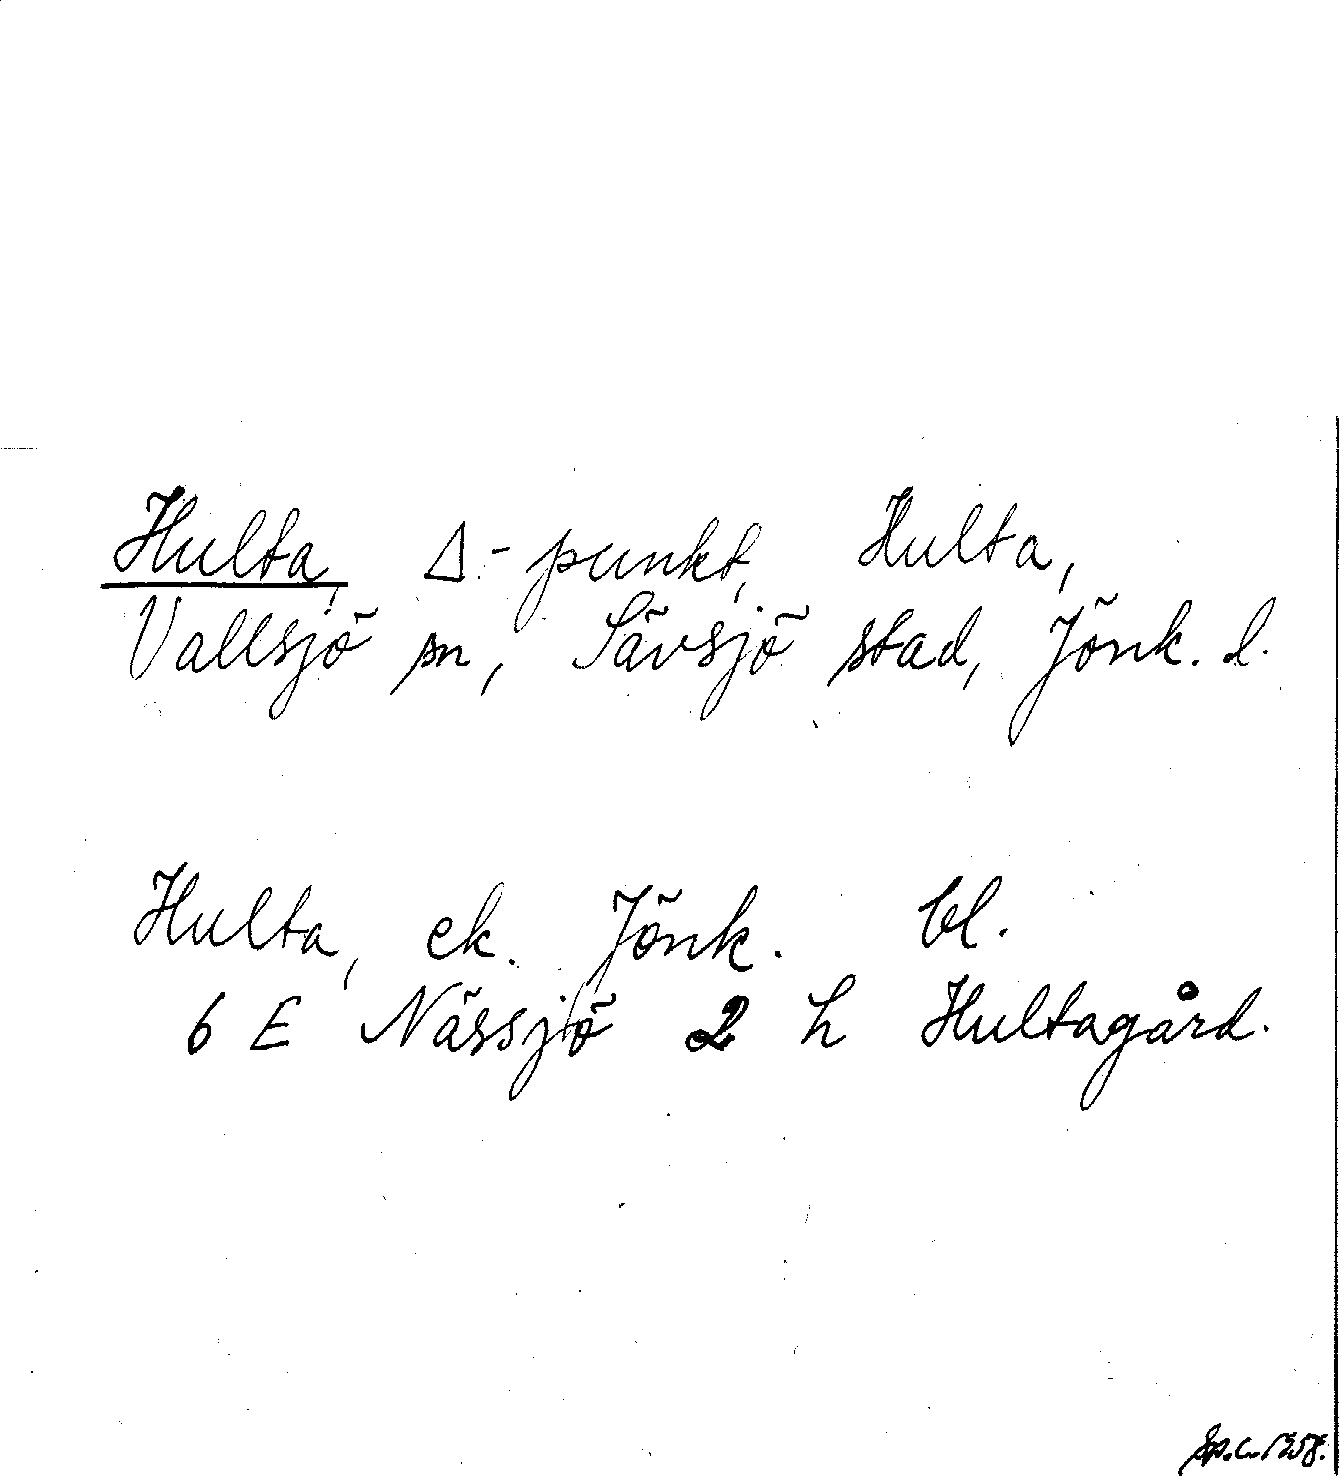 Hulta, Δ-punkt, Hulta,
Vallsjö sn, Sävsjö stad, Jönk. l.
Hulta, ek. Jönk. bl.
6 E Nässjö 2 h Hultagård.